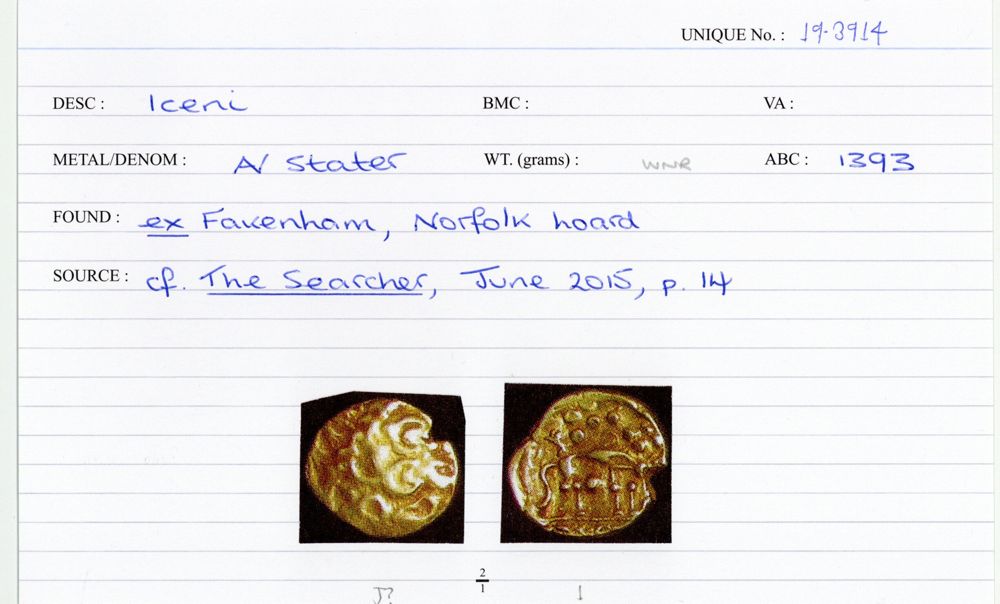 UNIQUE No. : 19-3914
DESC : Iceni BMC : VA :
METAL/DENOM : A/ Stater WT. (grams) : WNR ABC : 1393
FOUND : ex Fakenham, Norfolk hoard
SOURCE : cf. The Searcher, June 2015, p. 14
2
1
J? 1